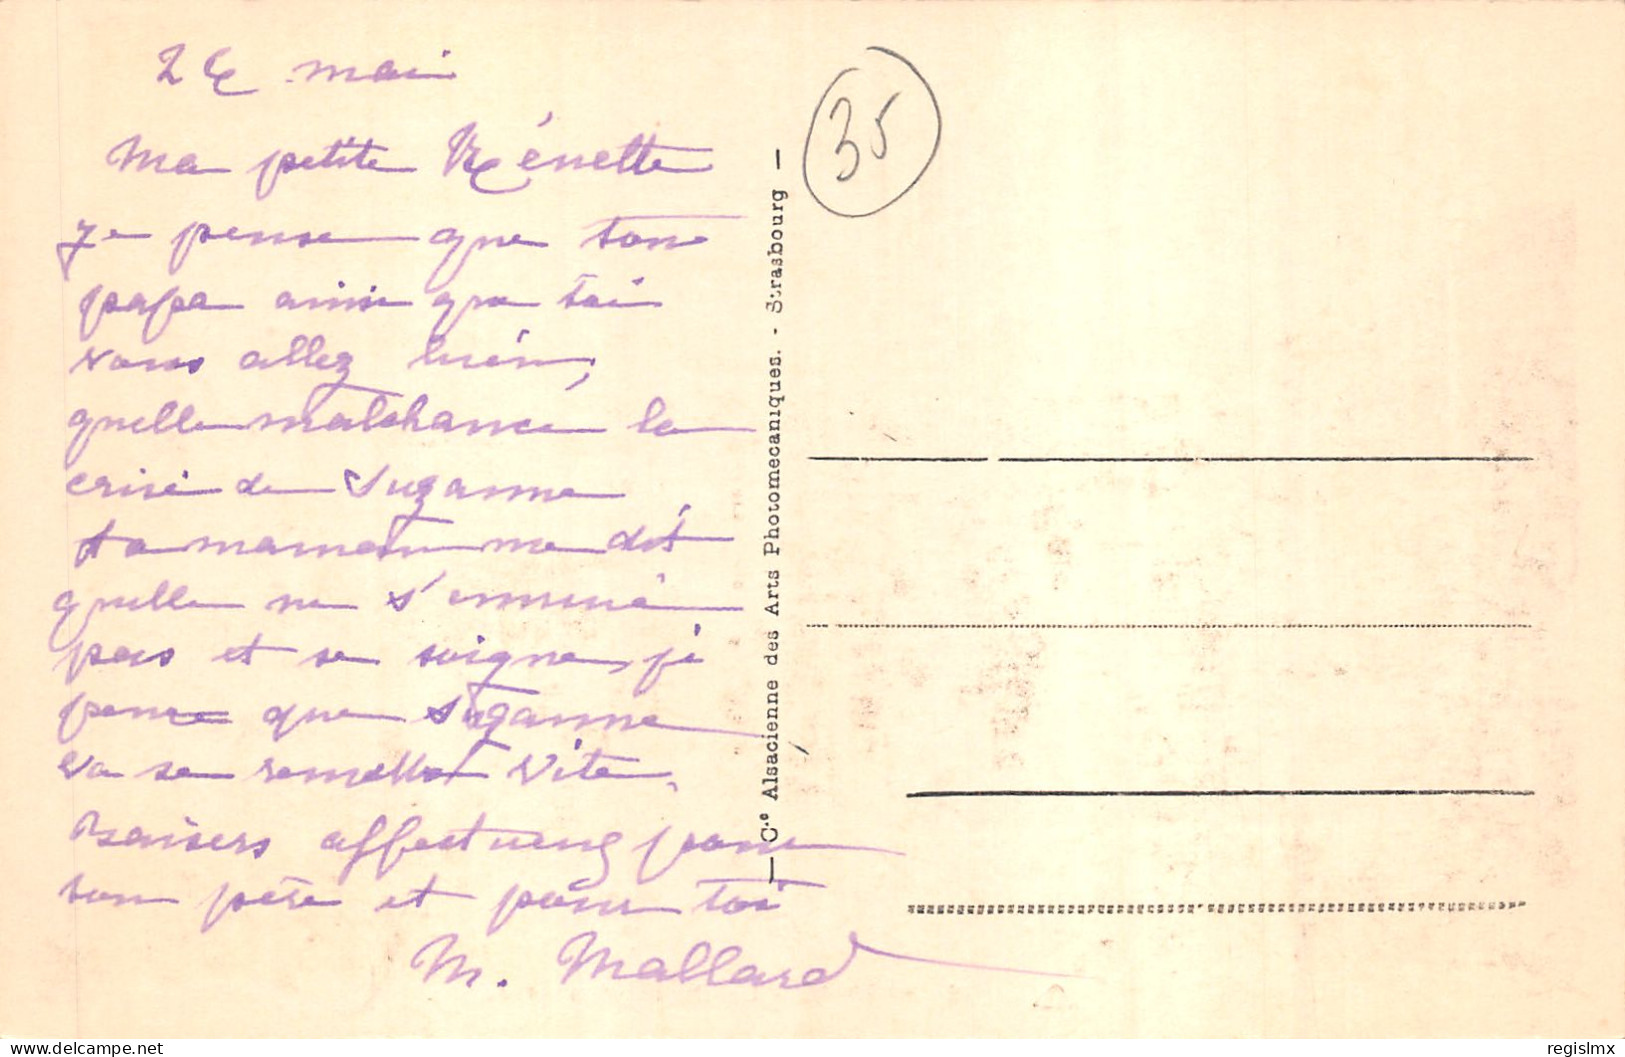 mai
Ma petite Rénette
je pense que ton
papa ainsi que toi
vous allez bien,
quelle malchance la
crise de Suzanne
ta maman me dit
quelle ne s'ennuie
pas et se soigne, je
pense que Suzanne
va se remettre vite.
Baisers affectueux pour
ton père et pour toi
M. Mallard
— Cie Alsacienne des Arts Photomecaniques. - Strasbourg —
35
delcampe.net
regislmx